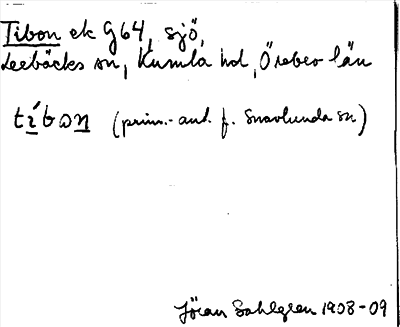 Tibon ek G64, sjö,
Lerbäcks sn, Kumla hd, Örebro län
tíbɷn (prim.-ant. f. Snavlunda sn)
Jöran Sahlgren 1908-09